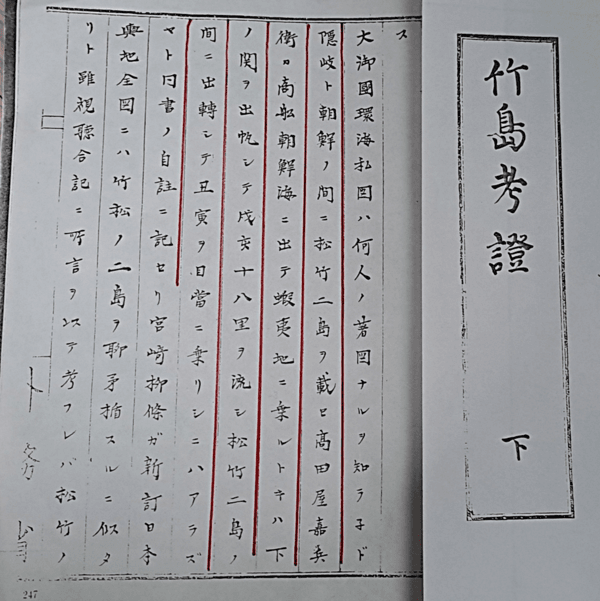 竹島考證
下
ス
大御國環海私図ハ何人ノ著図ナルヲ知ラ子ド
隠岐ト朝鮮ノ間ニ松竹二島ヲ載セ高田屋嘉兵
衛ハ商船朝鮮海ニ出テ蝦夷地ニ乗ルトキハ下
ノ関ヲ出帆シテ戌亥十八里ヲ流シ松竹二島ノ
間ニ出轉シテ丑寅ヲ目當ニ乗リシニハアラズ
マト同書ノ自註ニ記セリ宮﨑柳條ガ新訂日本
輿地全図ニハ竹松ノ二島ヲ聊矛楯スルニ似タ
リト雖視聽合記ニ所言ヲ以テ考フレバ松竹ノ
247